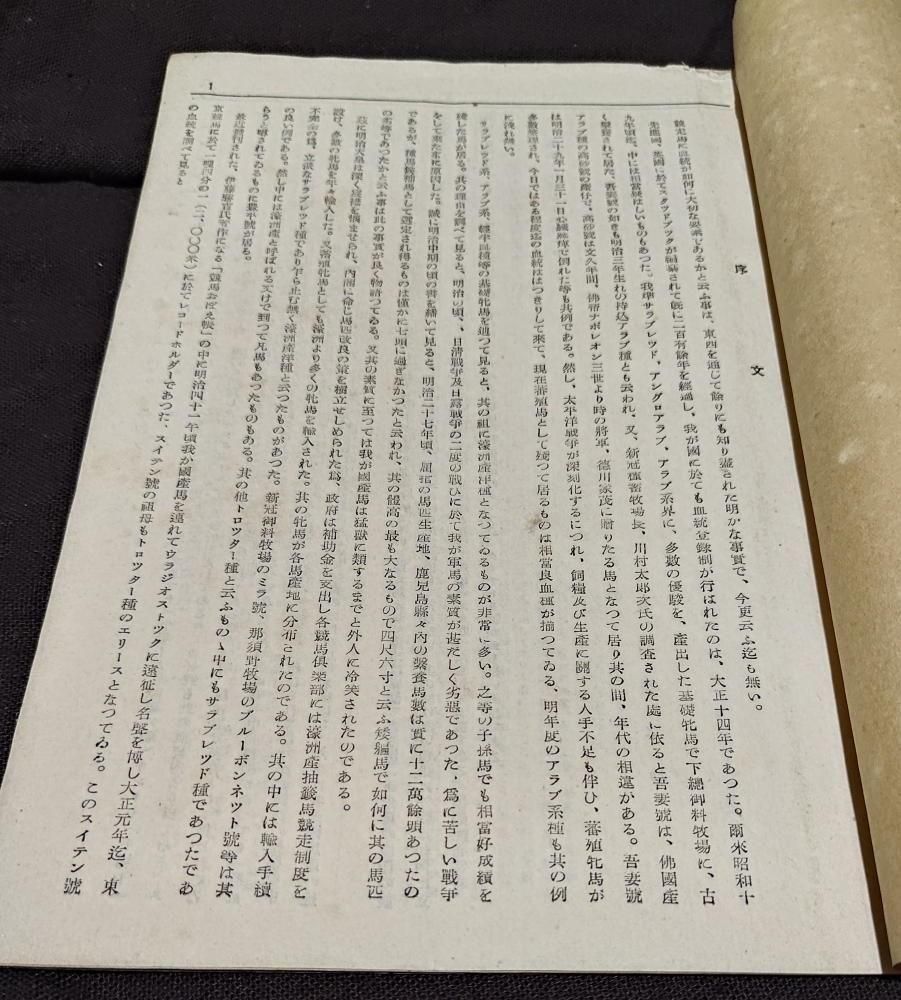 1
序文
競走馬に血統が如何に大切な要素であるかと云ふ事は、東西を通じて餘りにも知り盡された明かな事實で、今更云ふ迄も無い。
先進國、英國に於てスタッドブックが編纂されて既に二百有餘年を經過し、我が國に於ても血統登錄制が行はれたのは、大正十四年であつた。爾來昭和十
九年頃迄、中には相當疑はしいものもあつた。我準サラブレッド、アングロアラブ、アラブ系界に、多數の優駿を、產出した基礎牝馬で下總御料牧場に、古
く繫養されて居た、吾妻號の如きも明治三年生れの持込アラブ種とも云われ、又、新冠種畜牧場長、川村太郎次氏の調査された處に依ると吾妻號は、佛國產
アラブ種の高砂號の產仔で、高砂號は文久年間、佛帝ナポレオン三世より時の將軍、德川家茂に贈りたる馬となつて居り其の間、年代の相違がある。吾妻號
は明治二十九年一月三十一日心臟麻痺で倒れた等も其例である。然し、太平洋戰爭が深刻化するにつれ、飼糧及び生產に關する人手不足も伴ひ、蕃殖牝馬が
多數整理され、今日ではある程度迄の血統ははつきりして來て、現在蕃殖馬として殘つて居るものは相當良血種が揃つてゐる、明年度のアラブ系種も其の例
に洩れ無い。
サラブレッド系、アラブ系、輕半血種等の基礎牝馬を廻つて見ると、其の祖に濠洲產洋種となつてゐるものが非常に多い。之等の子孫馬でも相當好成績を
殘した馬が居る。其の理由を調べて見ると、明治の頃、、日淸戰爭及日露戰爭の二度の戰ひに於て我が軍馬の素質が甚だしく劣惡であつた、爲に苦しい戰爭
をして來た事に原因した。誠に明治中期の頃の書を繙いて見ると、明治二十七年頃、屈指の馬匹生產地、鹿兒島縣々內の繫養馬數は實に十二萬餘頭あつたの
であるが、種馬候補馬として選定され得るものは僅かに七頭に過ぎなかつたと云われ、其の體高の最も大なるもので四尺六寸と云ふ矮軀馬で如何に其の馬匹
の劣等であつたかと云ふ事は此の事實が良く物語つてゐる。又其の素質に至つては我が國產馬は猛獸に類するまでと外人に冷笑されたのである。
玆に明治天皇は深く宸襟を惱ませられ、內閣に命じ馬匹改良の策を樹立せしめられた爲、政府は補助金を支出し各競馬俱楽部には濠洲產抽籤馬競走制度を
設け、多數の牝馬を年々輸入した。又蕃殖牝馬としても濠洲より多くの牝馬を輸入された。其の牝馬が各馬產地に分布されたのである。其の中には輸入手續
不完全の爲、立派なサラブレッド種であり乍ら止む無く濠洲產洋種と云つたものがあつた。新冠御料牧場のミラ號、那須野牧場のブルーボンネット號等は其
の良い例である。然し中には濠洲產と呼ばれる丈けで到つて凡馬もあつたものもある。其の他トロッター種と云ふものゝ中にもサラブレッド種であつたであ
らうと唱されてゐるものに豊平號が居る。
最近發刊された、伊藤勝吉氏著作になる「競馬おぼえ帳」の中に明治四十一年頃我か國產馬を連れてウラジオストックに遠征し名聲を博し大正元年迄、東
京競馬に於て一哩四分の一(二、〇〇〇米)に於てレコードホルダーであつた、スイテン號の祖母もトロッター種のエリースとなつてゐる。このスイテン號
の血統を調べて見ると